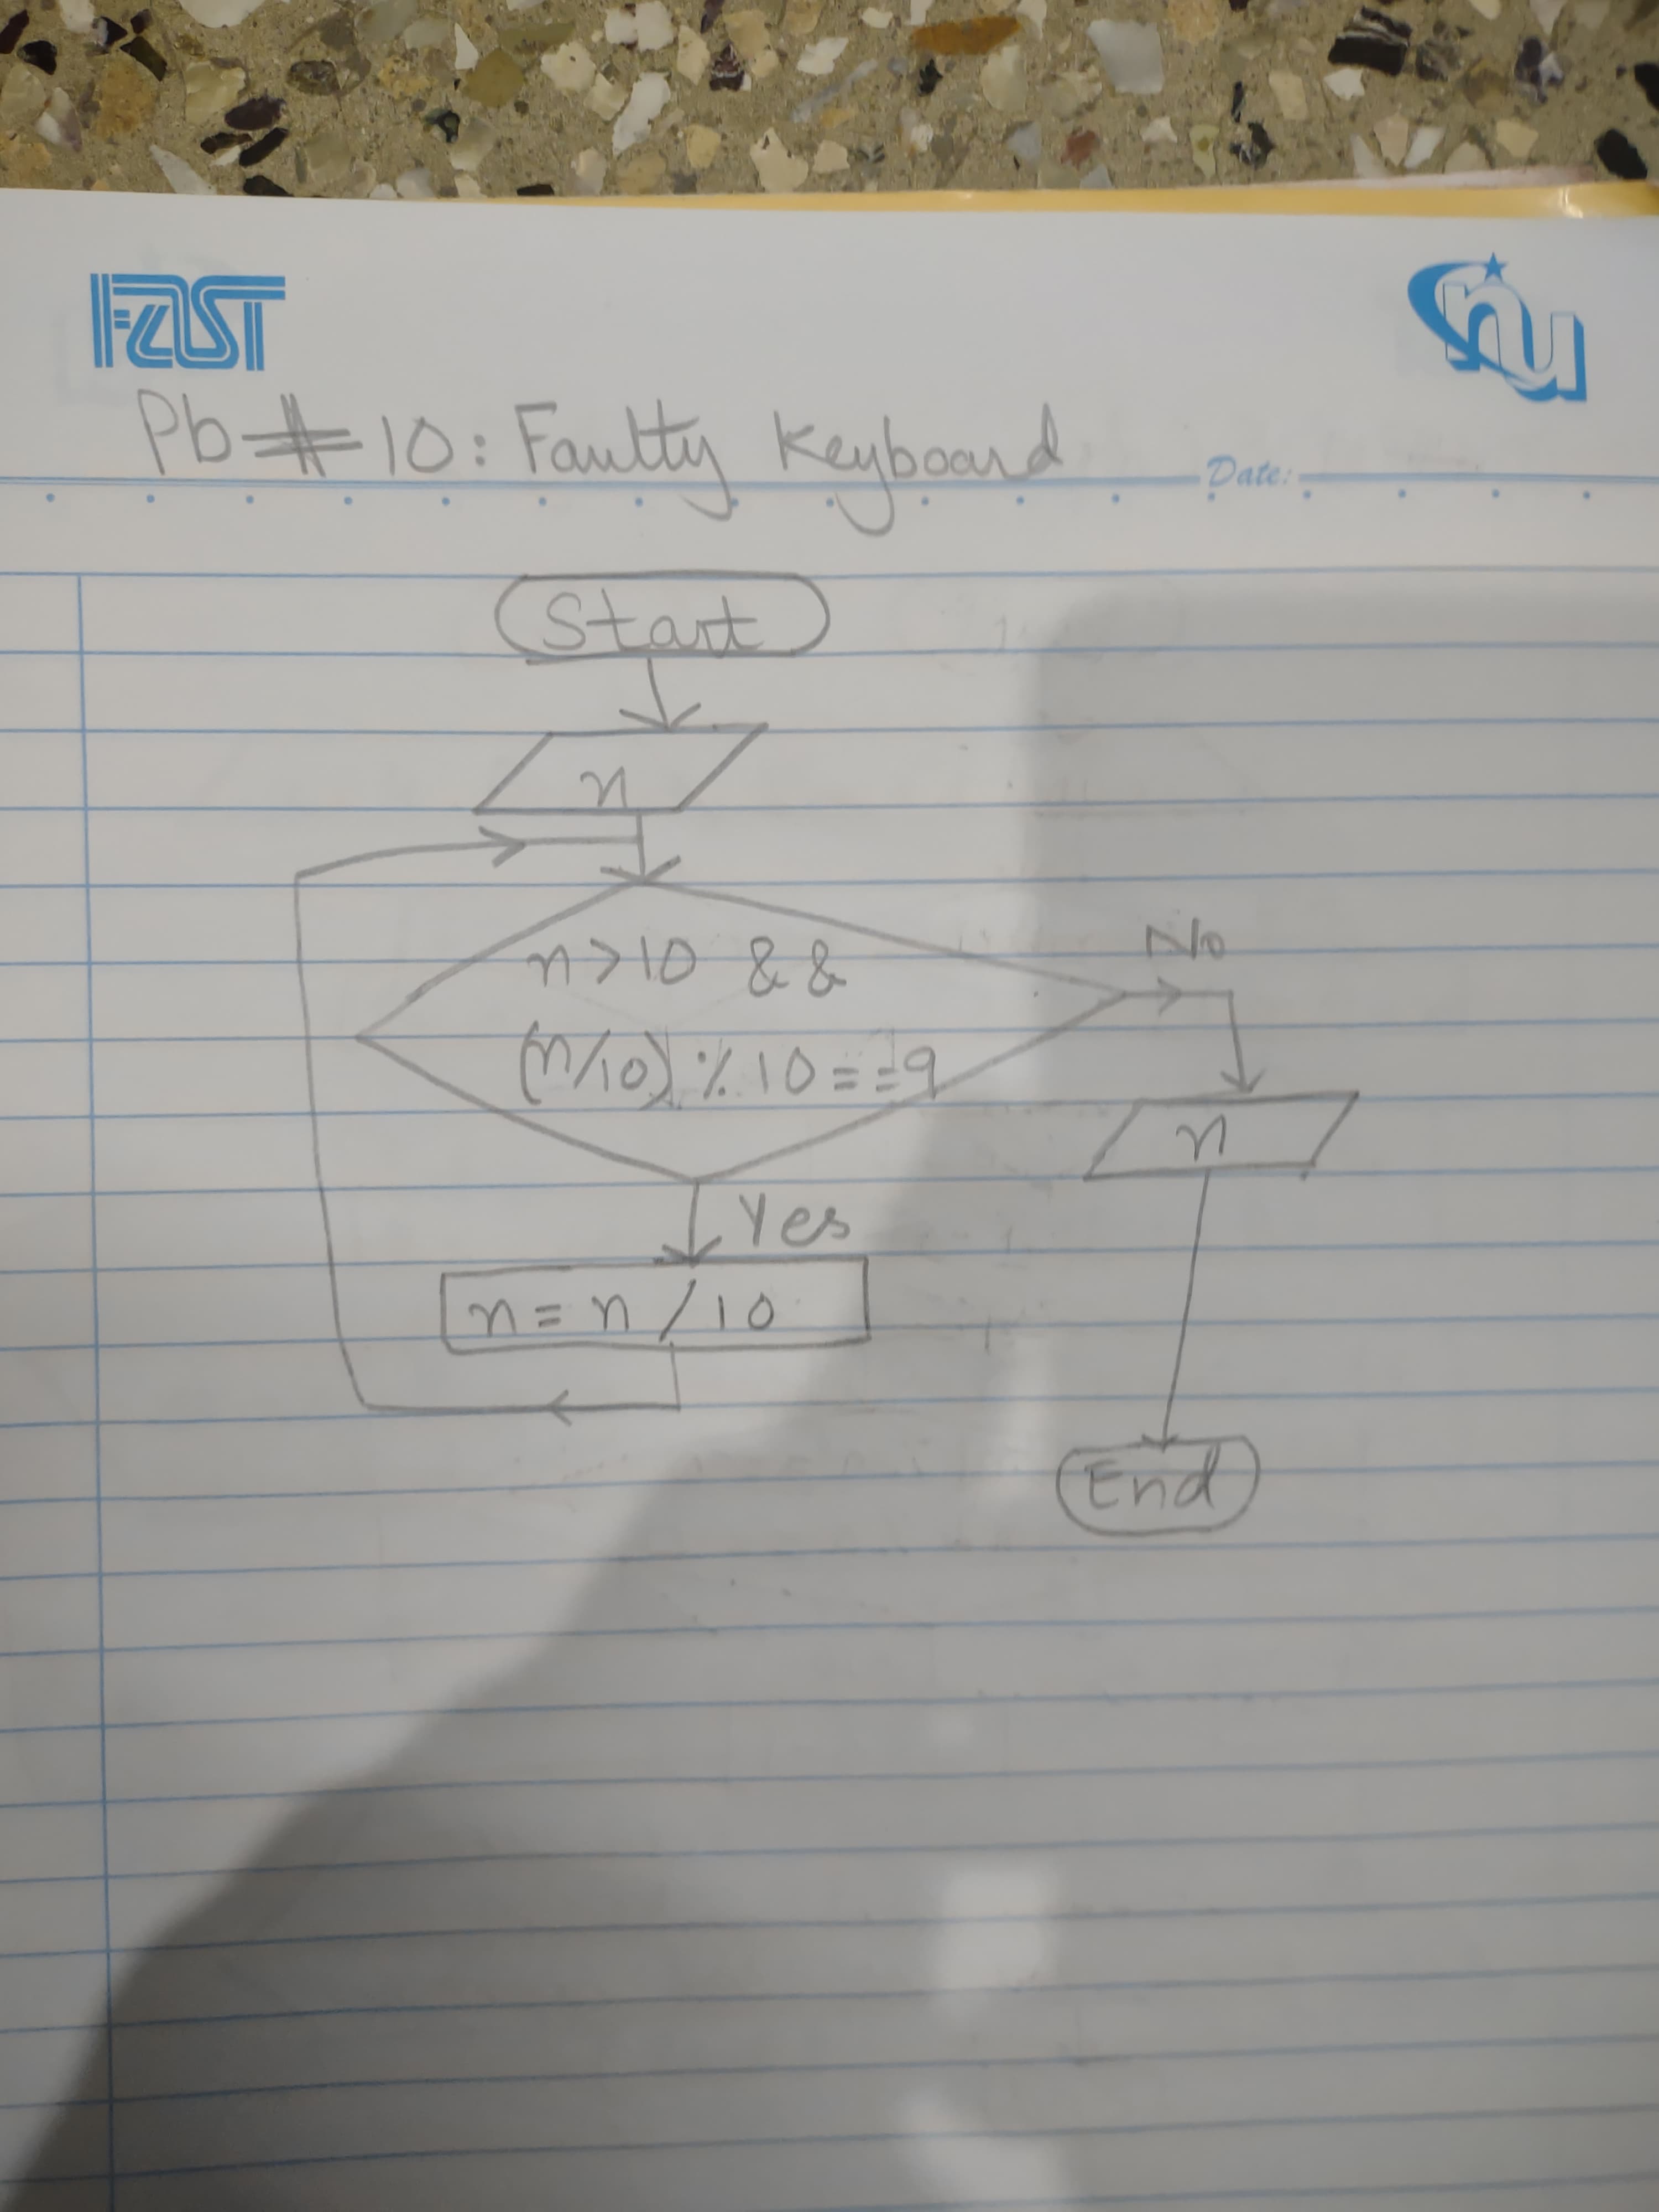 FAST
nu
Pb # 10: Faulty Keyboard
Date:
Start
n
n>10 &&
(n/10) % 10 == 9
No
n
Yes
n = n / 10
End